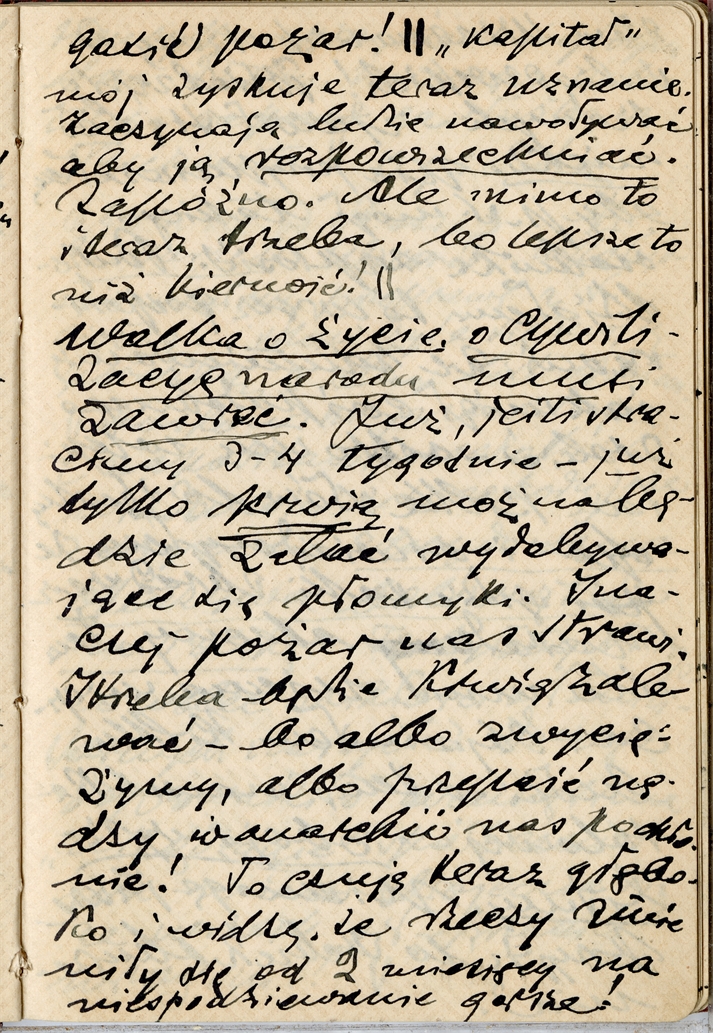 gasić pożar! || „Kapitał”
mój zyskuje teraz uznanie.
Zaczynają ludzie nawoływać
aby ją rozpowszechniać.
Zapóźno. Ale mimo to
i teraz trzeba, bo lepsze to
niż bierność! ||
Walka o życie, o Cywili-
zację narodu musi
zawrzeć. Już, jeśli stra-
cimy 3-4 tygodnie – już
tylko krwią można bę-
dzie zalać wydobywa-
jące się płomyki. Ina-
czej pożar nas strawi.
I trzeba będzie krwią zale
wać – bo albo zwycię-
żymy, albo przepaść nę-
dzy i w anarchii nas pochło-
nie! To czuję teraz głębo-
ko i widzę, że rzeczy zmie
niły się od 2 miesięcy na
niespodziewanie gorsze!